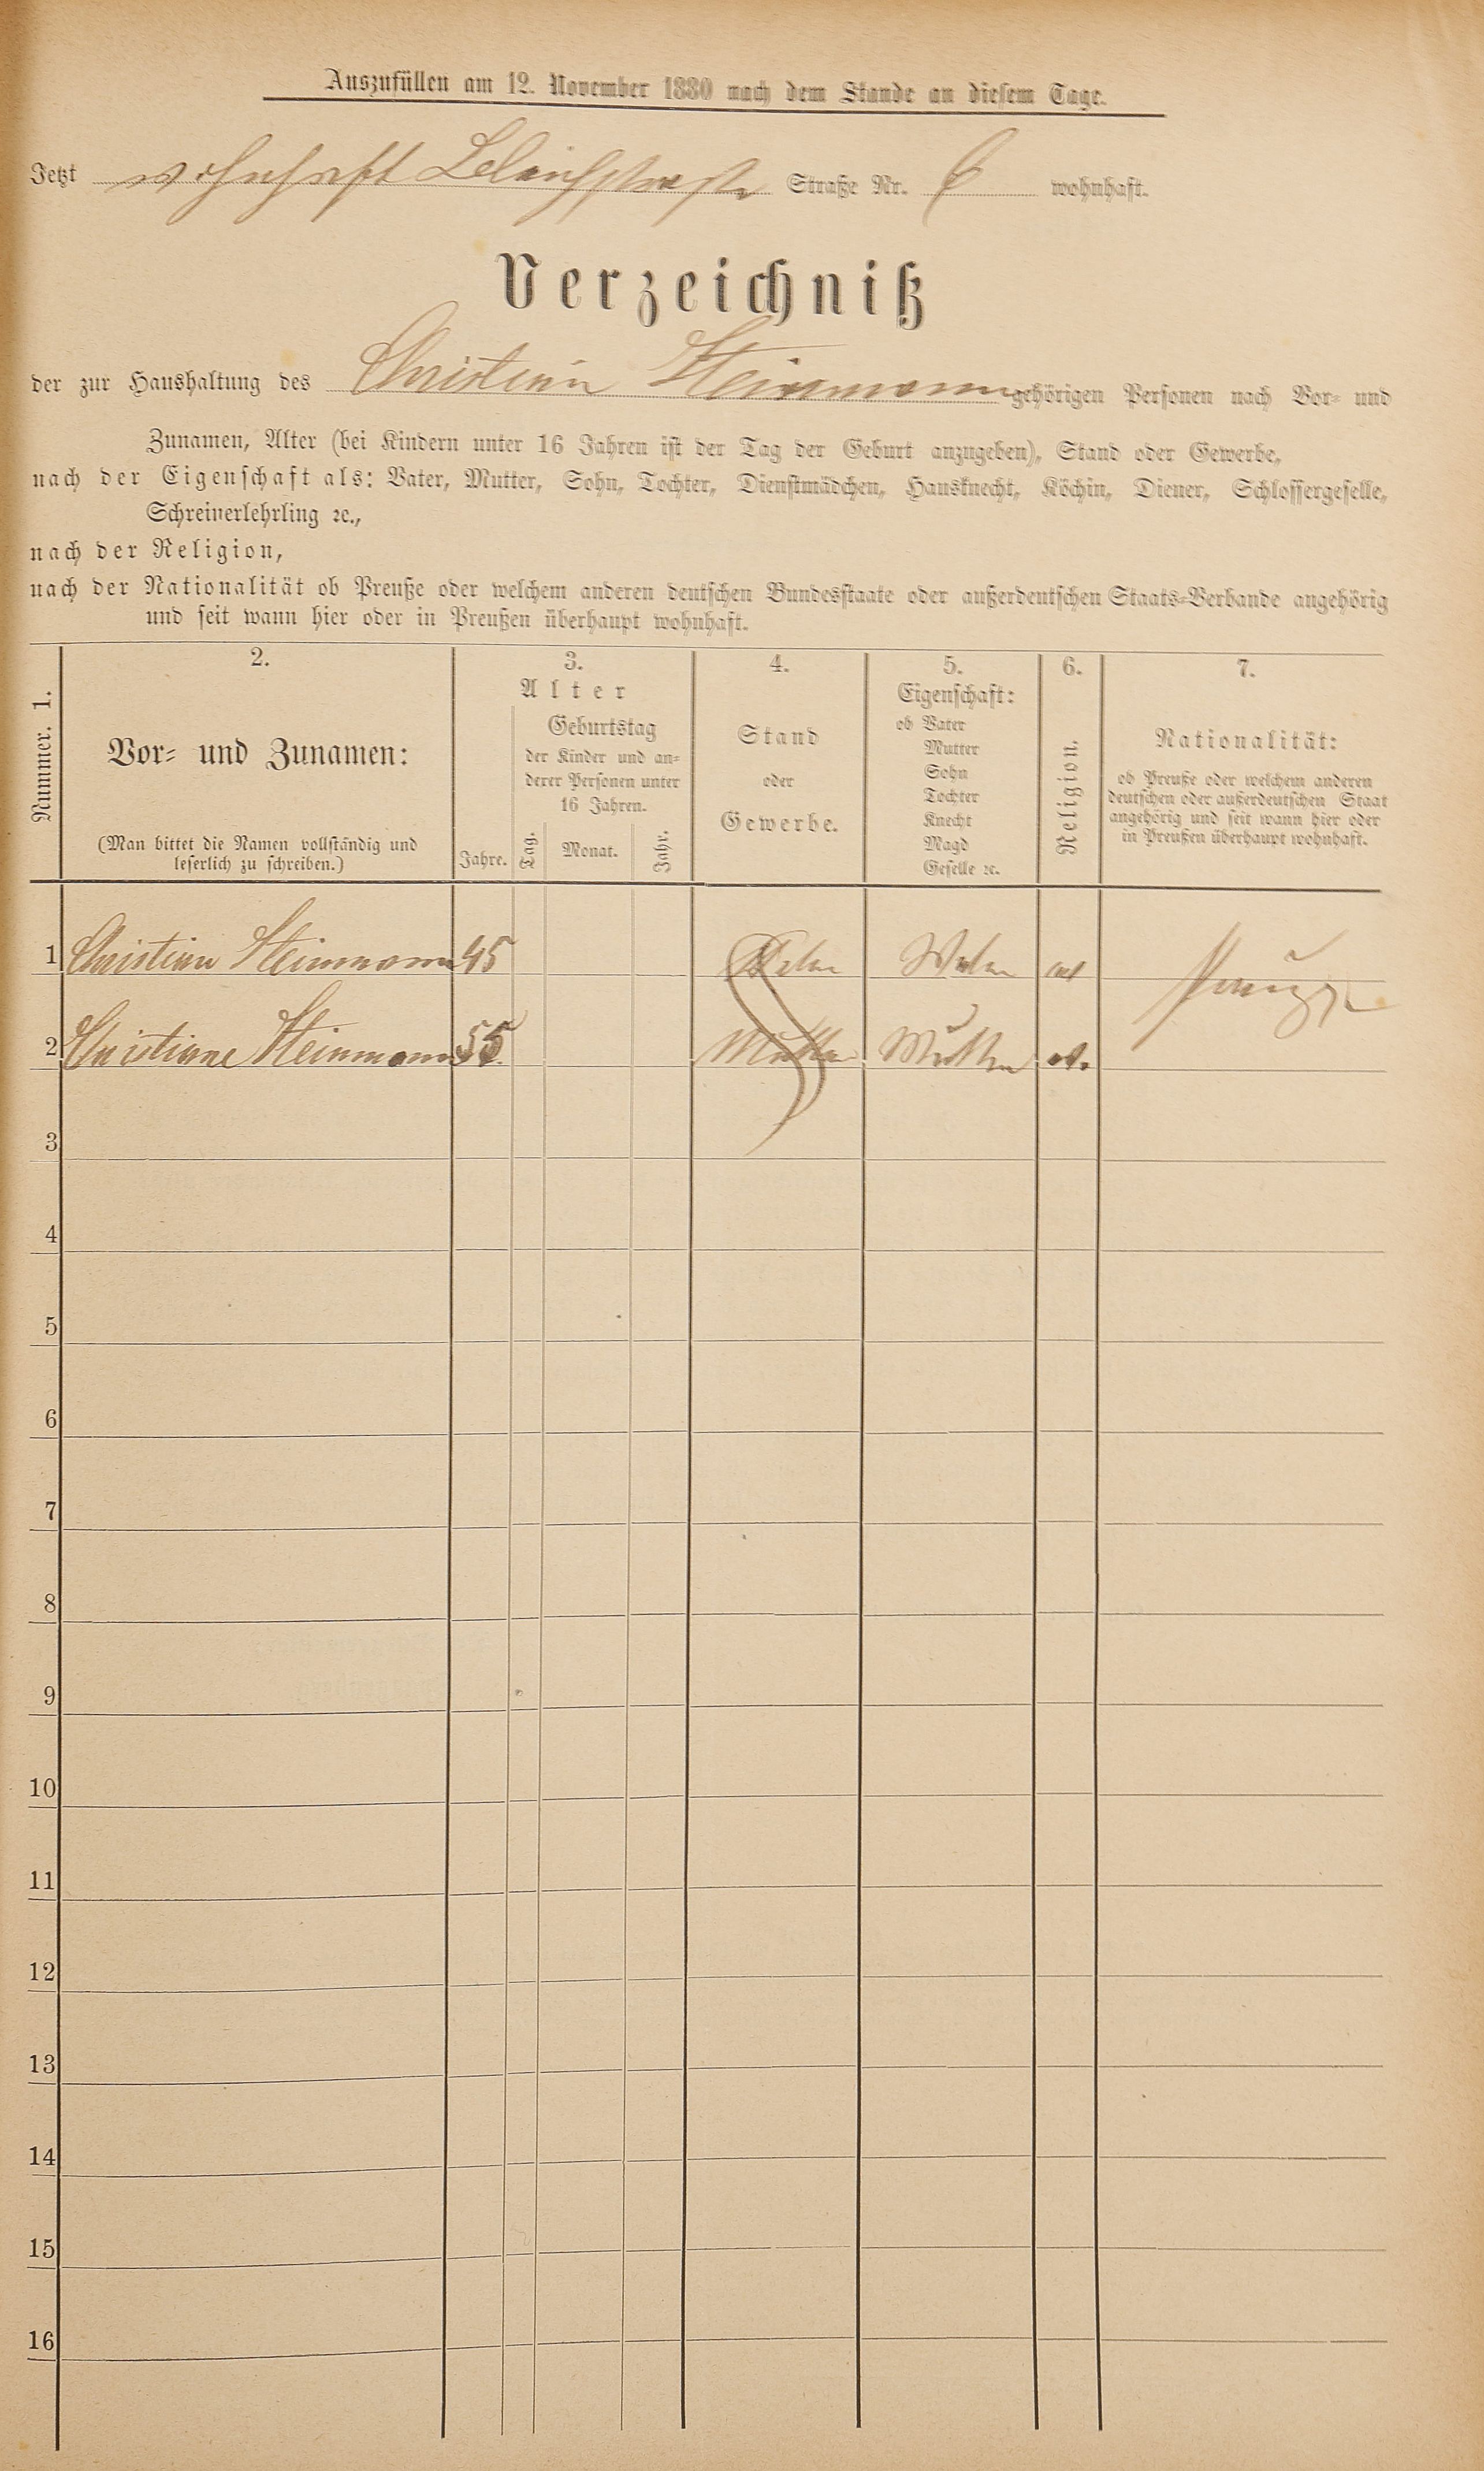 Auszufüllen am 12. November 1880 nach dem Stande an diesem Tage.
Jetzt wohnhaft Straße Nr. 6 wohnhaft.
Verzeichniß
der zur Haushaltung des Christian Steinmann gehörigen Personen nach Vor- und
Zunamen, Alter (bei Kindern unter 16 Jahren ist der Tag der Geburt anzugeben), Stand oder Gewerbe,
nach der Eigenschaft als: Vater, Mutter, Sohn, Tochter, Dienstmädchen, Hausknecht, Köchin, Diener, Schlossergeselle,
Schreinerlehrling ꝛc.,
nach der Religion,
nach der Nationalität ob Preuße oder welchem anderen deutschen Bundesstaate oder außerdeutschen Staats-Verbande angehörig
und seit wann hier oder in Preußen überhaupt wohnhaft.
Nummer. 1.
2.
Vor- und Zunamen:
(Man bittet die Namen vollständig und
leserlich zu schreiben.)
3.
Alter
Jahre.
Geburtstag
der Kinder und an-
derer Personen unter
16 Jahren.
Tag.
Monat.
Jahr.
4.
Stand
oder
Gewerbe.
5.
Eigenschaft:
ob Vater
Mutter
Sohn
Tochter
Knecht
Magd
Geselle ꝛc.
6.
Religion.
7.
Nationalität:
ob Preuße oder welchem anderen
deutschen oder außerdeutschen Staat
angehörig und seit wann hier oder
in Preußen überhaupt wohnhaft.
1 Christian Steinmann 45 Vater ev Preuße
2 Christiane Steinmann 55 Mutter Mutter ev.
3
4
5
6
7
8
9
10
11
12
13
14
15
16